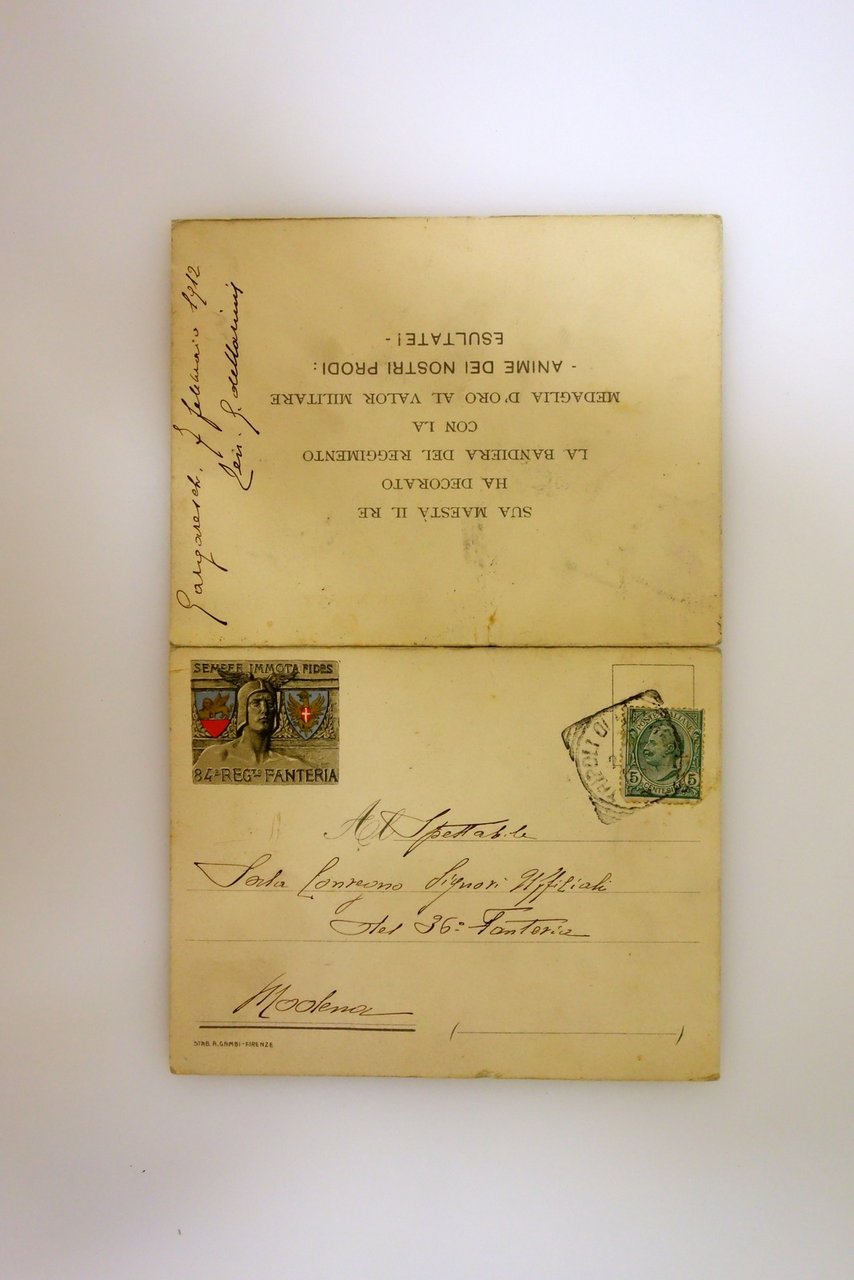 Gargaresch, 7 febbraio 1912
SUA MAESTÀ IL RE
HA DECORATO
LA BANDIERA DEL REGGIMENTO
CON LA
MEDAGLIA D'ORO AL VALOR MILITARE
- ANIME DEI NOSTRI PRODI:
ESULTATE! -
SEMPER IMMOTA FIDES
84° REG.TO FANTERIA
TRIPOLI
POSTE ITALIANE
5 5
CENTESIMI
Al Spettabile
Sala Convegno Signori Ufficiali
del 36° Fanteria
Modena
STAB. A. GAMBI - FIRENZE
( )